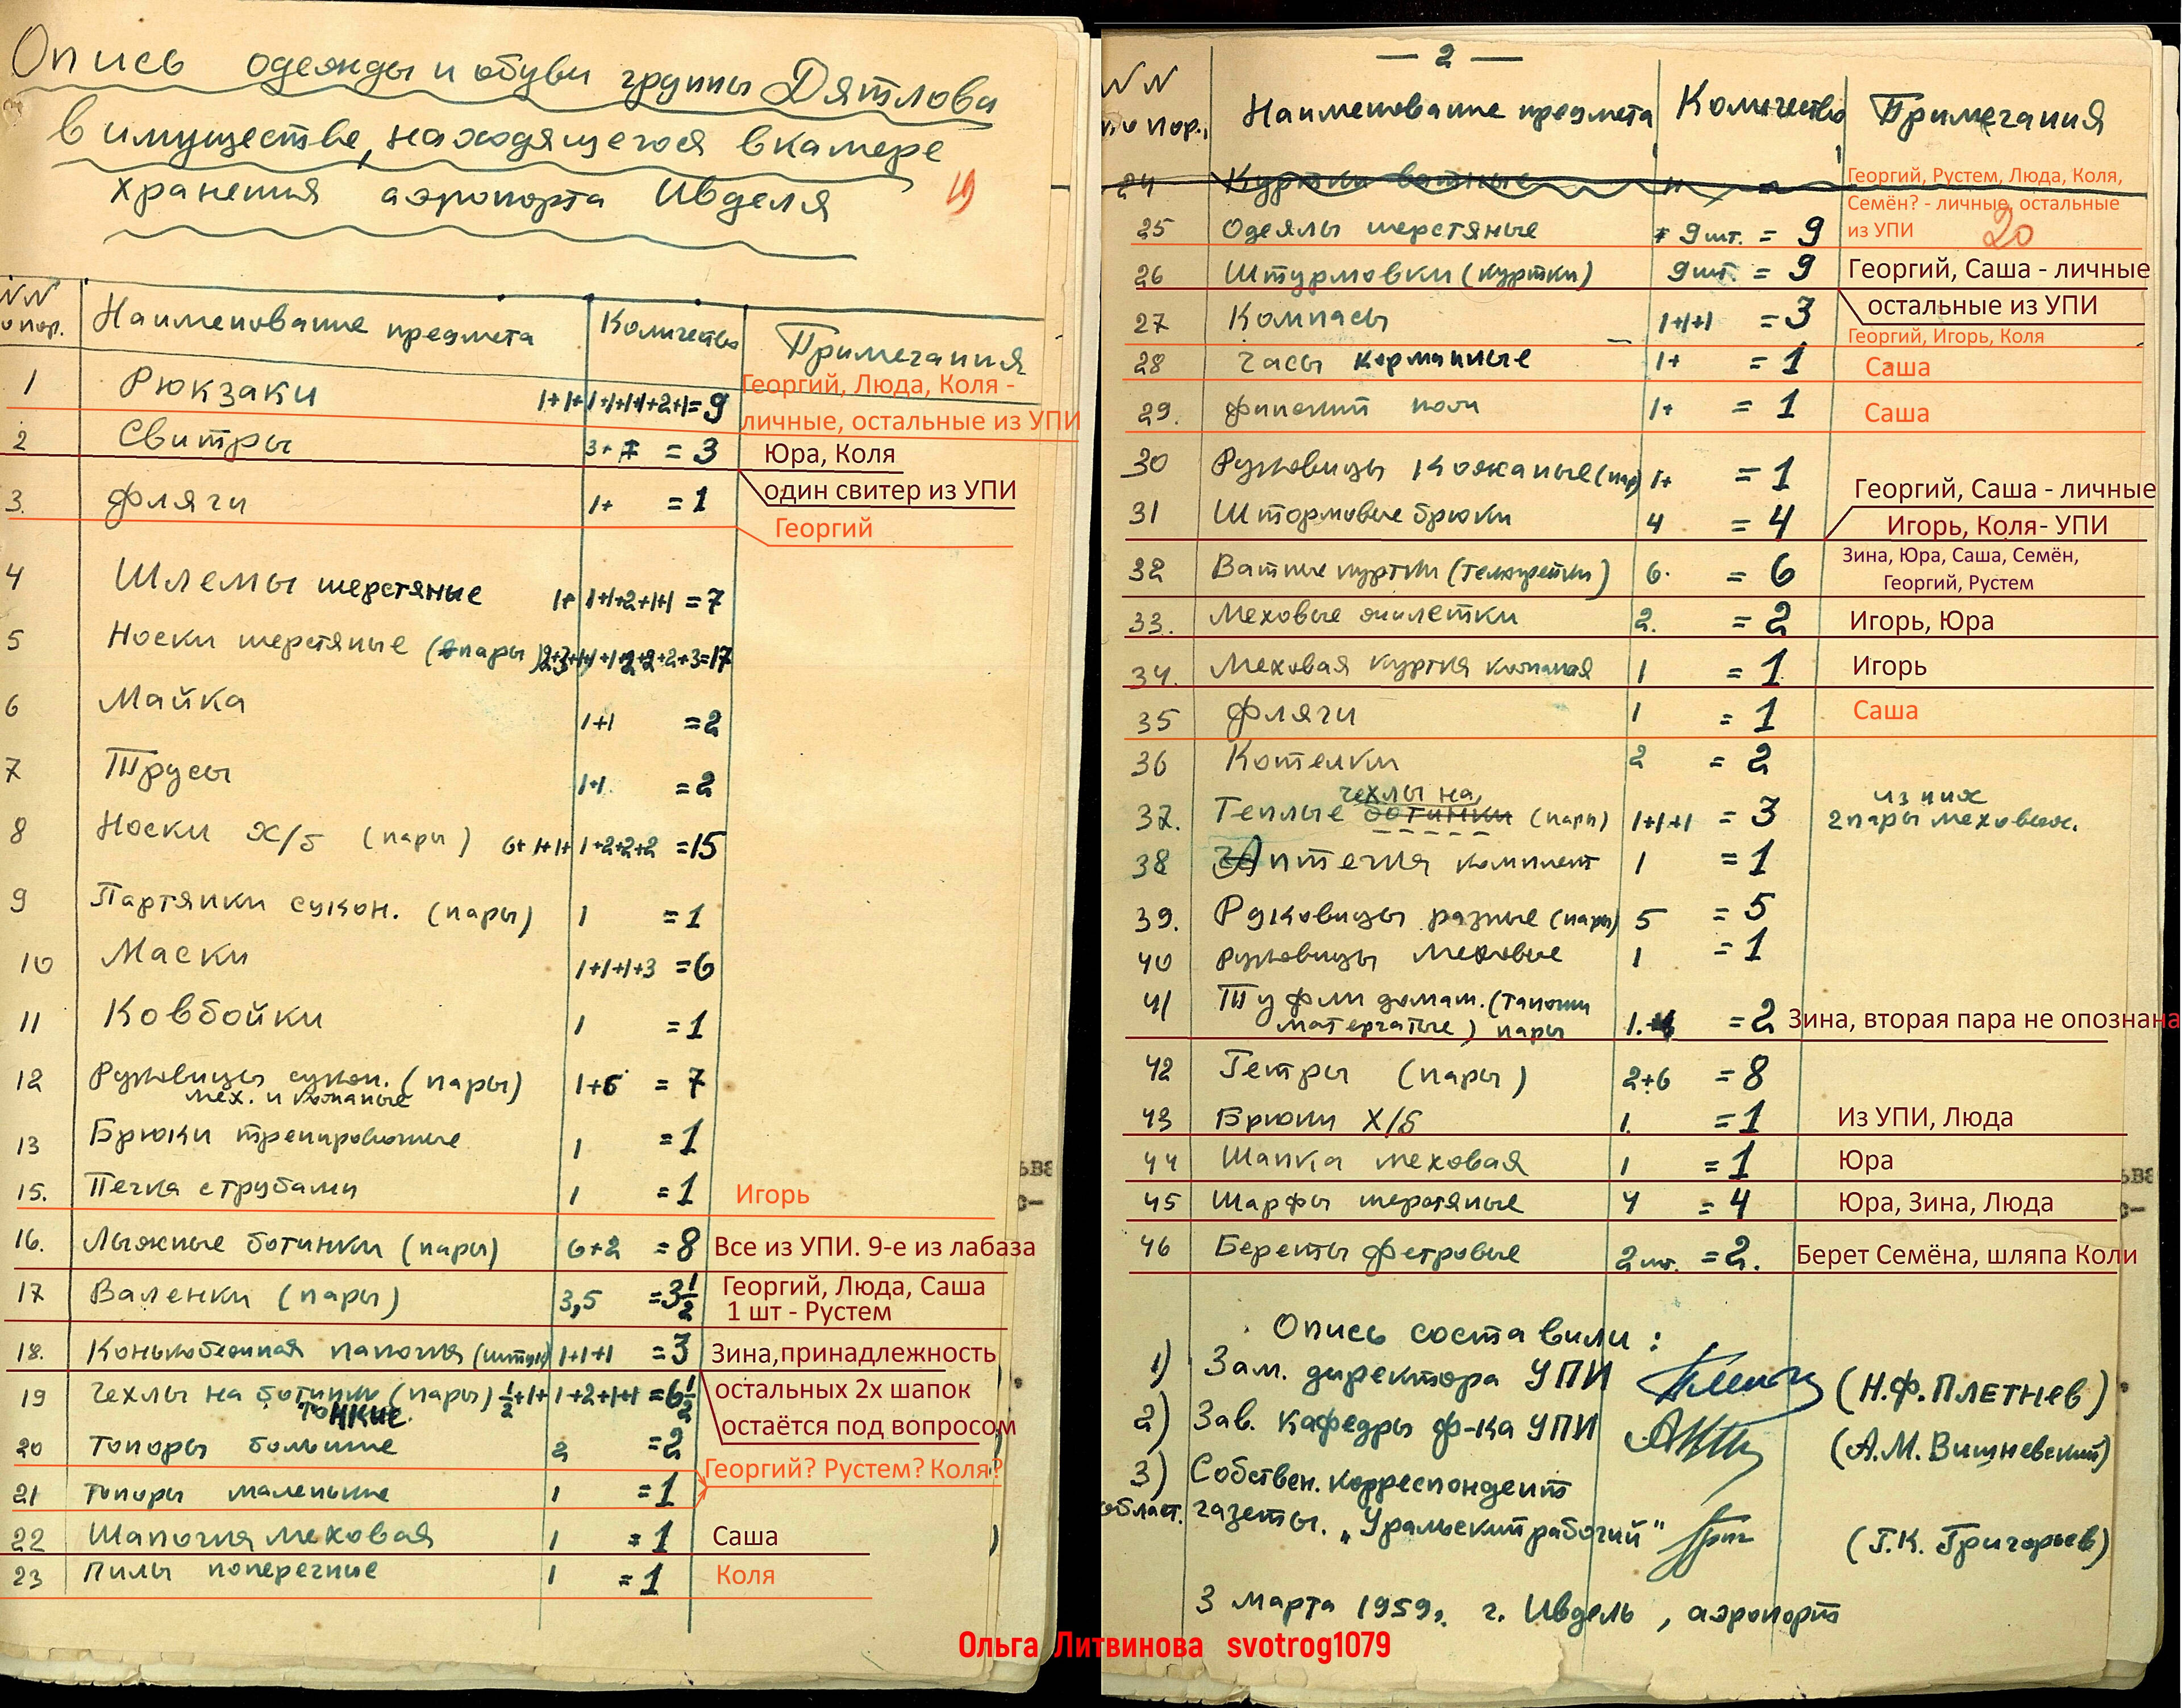 Опись одежды и обуви группы Дятлова
в имуществе, находящегося в камере
хранения аэропорта Ивделя
19
NN по пор. Наименование предмета Количество Примечания
1 Рюкзаки 1+1+1+1+1+1+2+1=9 Георгий, Люда, Коля -
личные, остальные из УПИ
2 Свитры 3+ =3 Юра, Коля
один свитер из УПИ
3. Фляги 1+ =1
Георгий
4 Шлемы шерстяные 1+1+1+2+1+1=7
5 Носки шерстяные (пары) =17
6 Майка 1+1 =2
7 Трусы 1+1. =2
8 Носки х/б (пары) 6+1+1+1+2+2+2 =15
9 Партянки сукон. (пары) 1 =1
10 Маски 1+1+1+3 =6
11 Ковбойки 1 =1
12 Руковицы сукон. (пары) 1+6 = 7
мех. и кожаные
13 Брюки тренировочные 1 =1
15. Печка с трубами 1 =1 Игорь
16. Лыжные ботинки (пары) 6+2 =8 Все из УПИ. 9-е из лабаза
17 Валенки (пары) 3,5 =3 1/2 Георгий, Люда, Саша
1 шт - Рустем
18. Конькобежная шапочка (штук) 1+1+1 =3 Зина,принадлежность
остальных 2х шапок
остаётся под вопросом
19 Чехлы на ботинки (пары) 1/2+1+1+2+1+1=6 1/2
тонкие.
20 Топоры большие 2 =2
Георгий? Рустем? Коля?
21 Топоры маленькие 1 =1
22 Шапочка меховая 1 =1 Саша
23 Пилы поперечние 1 =1 Коля
— 2 —
NN по пор. Наименование предмета Количество Примечания
24 Куртки ватные
Георгий, Рустем, Люда, Коля,
Семён? - личные, остальные
из УПИ
20
25 Одеялы шерстяные 9шт. = 9
26 Штурмовки (куртки) 9шт = 9 Георгий, Саша - личные
остальные из УПИ
27 Компасы 1+1+1 =3
Георгий, Игорь, Коля
28 Часы карманные 1+ =1 Саша
29. Финский нож 1+ =1 Саша
30 Руковицы кожаные (пар) 1+ =1
31 Штормовые брюки 4 =4 Георгий, Саша - личные
Игорь, Коля- УПИ
32 Ватные куртки (телогрейки) 6. =6 Зина, Юра, Саша, Семён,
Георгий, Рустем
33. Меховые жилетки 2. =2 Игорь, Юра
34. Меховая куртка кожаная 1 =1 Игорь
35 Фляги 1 =1 Саша
36 Котелки 2 =2
37. Теплые чехлы на ботинки (пары) 1+1+1 =3 из них
2 пары меховых.
38 Аптечка комплект 1 =1
39. Руковицы разные (пары) 5 =5
40 Руковицы меховые 1 =1
41 Туфли домаш. (тапочки
матерчатые) пары 1.+ =2 Зина, вторая пара не опознана
42 Гетры (пары) 2+6 =8
43 Брюки х/б 1. =1 Из УПИ, Люда
44 Шапка меховая 1 =1 Юра
45 Шарфы шерстяные 4 =4 Юра, Зина, Люда
46 Береты фетровые 2шт. =2. Берет Семёна, шляпа Коли
Опись составили:
1) Зам. директора УПИ (Н.Ф.ПЛЕТНЕВ)
2) Зав. кафедры ф-ка УПИ (А.М.Вишневский)
3) Собствен. корреспондент
област. газеты „Уральский рабочий" (Г.К. Григорьев)
3 марта 1959г. г. Ивдель, аэропорт
Ольга Литвинова svotrog1079